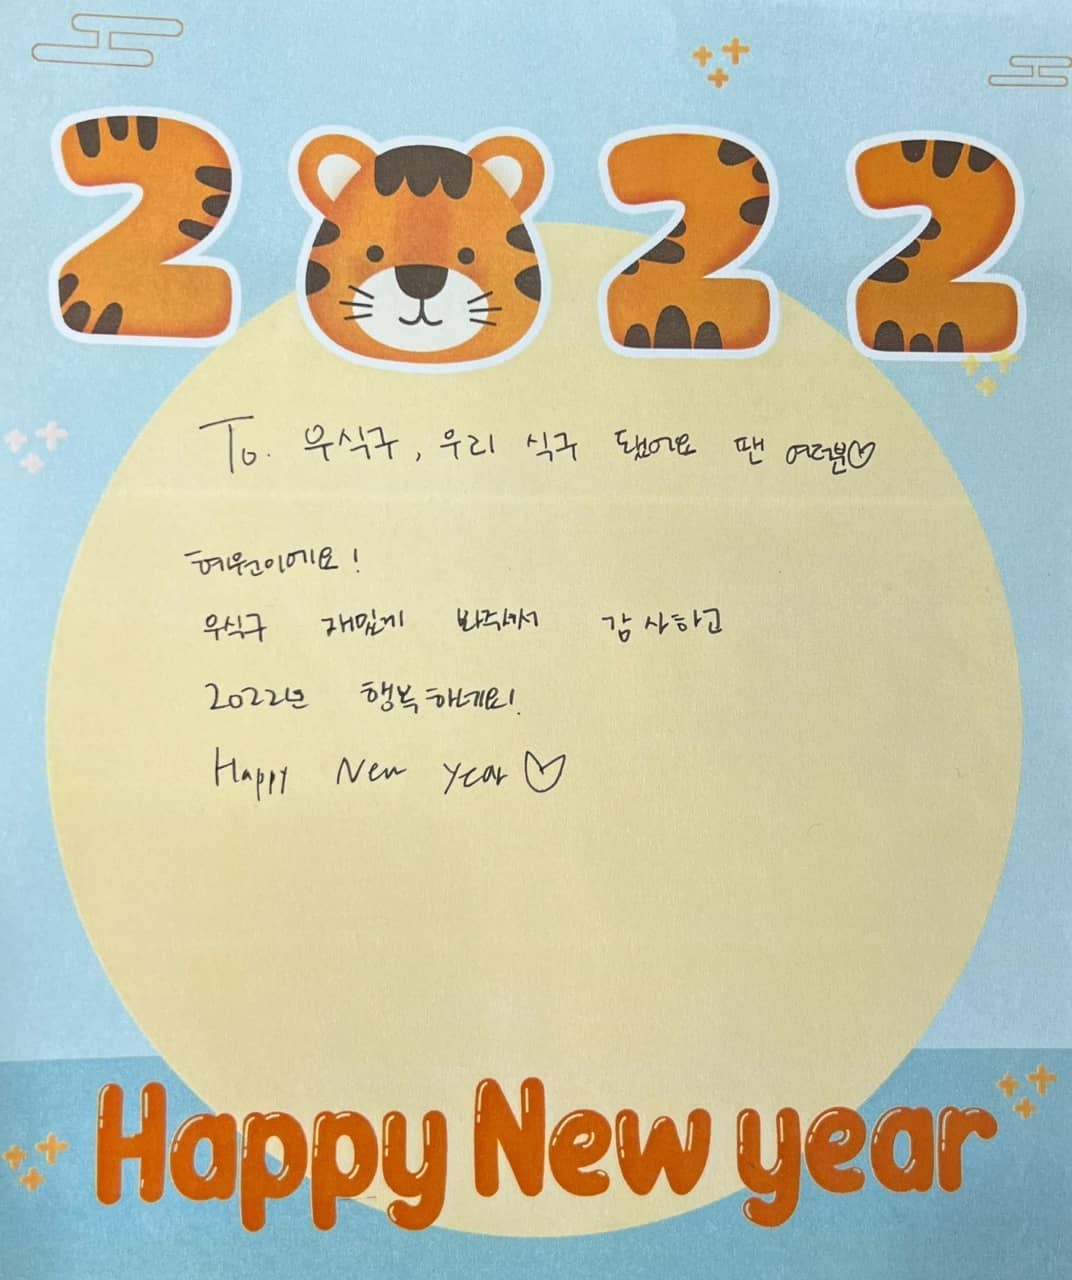 2022
To. 우식구, 우리 식구 됐어요 팬 여러분♡
혜원이에요!
우식구 재밌게 봐주셔서 감사하고
2022년 행복하세요!
Happy New year♡
Happy New year